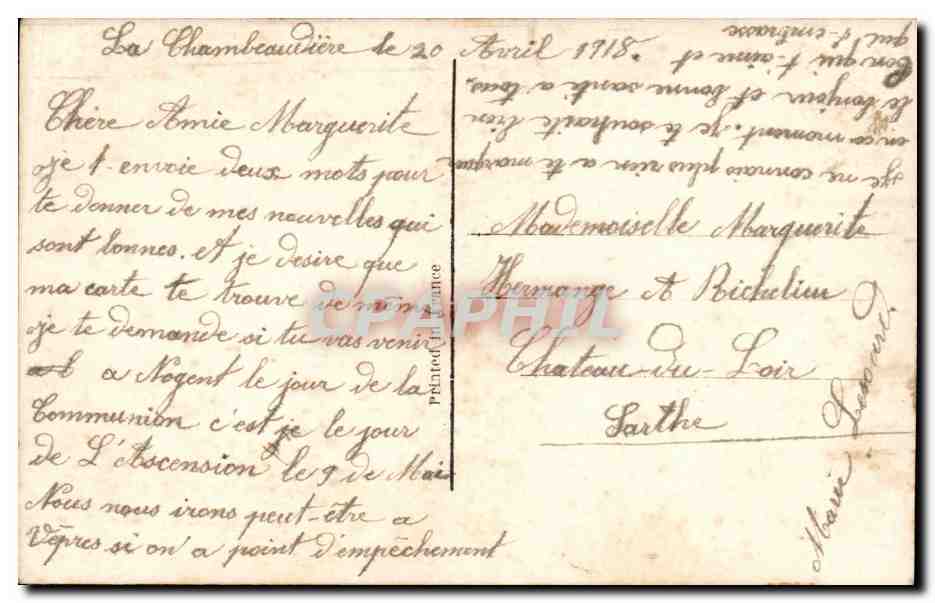 La Chambeaudière le 20 Avril 1918.
Chère Amie Marguerite
je t-envoie deux mots pour
te donner de mes nouvelles qui
sont bonnes. Et je desire que
ma carte te trouve de même
je te demande si tu vas venir
a Nogent le jour de la
Communion c'est je le jour
de L'Ascension le 9 de Mai
Nous nous irons peut-être a
Vêpres si on a point d'empêchement
je ne connais plus rien a te marquer
en ce moment. je te souhaite bien
le bonjour et bonne santé a tous.
qui t-aime et
qui t-embrasse
Mademoiselle Marguerite
Hermange A Richelieu
Chateau-du-Loir
Sarthe
Marie
Printed in France
CPAPHIL